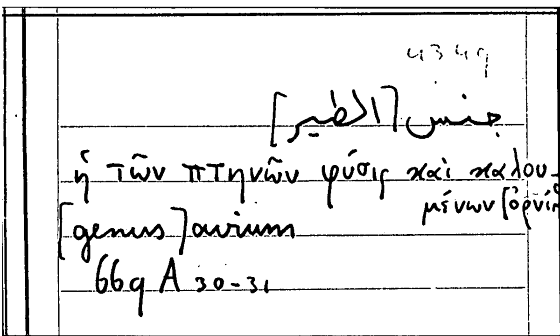 4349
جنس [الطير]
ἡ τῶν πτηνῶν φύσις καὶ καλου-
μένων [ὀρνίθ
[genus] avium
669 A 30-31